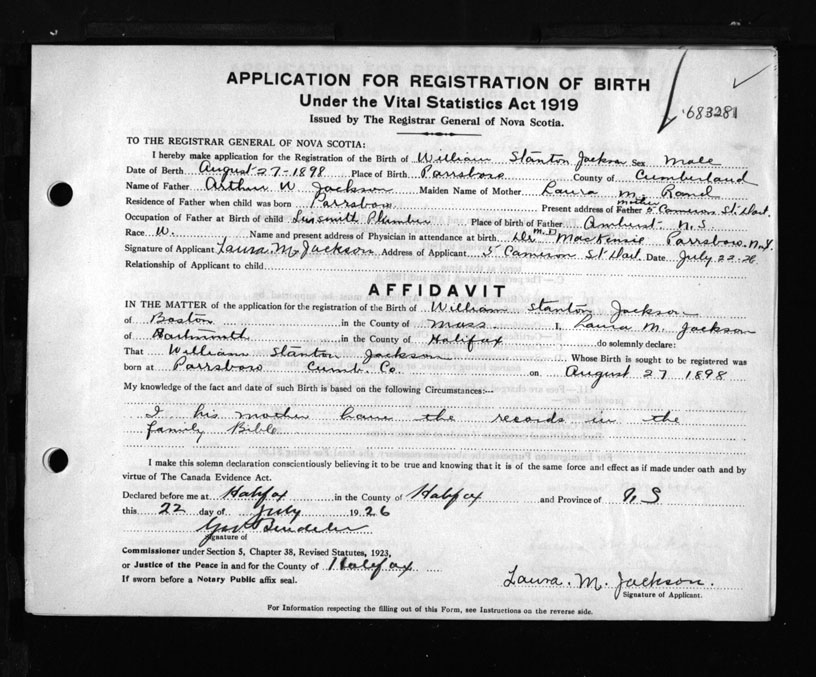 APPLICATION FOR REGISTRATION OF BIRTH
Under the Vital Statistics Act 1919
Issued by The Registrar General of Nova Scotia.
683281
TO THE REGISTRAR GENERAL OF NOVA SCOTIA:
I hereby make application for the Registration of the Birth of William Stanton Jackson Sex Male
Date of Berth August 27-1898 Place of Birth Parrsboro County of Cumberland
Name of Father Arthur W Jackson Maiden Name of Mother Laura M. Rand
Residence of Father when child was born Parrsboro Present address of Father mother 5 Cameron St. Dart.
Occupation of Father at Birth of child Plumber Place of birth of Father Amherst N.S.
Race W. Name and present address of Physician in attendance at birth Dr M.D MacKenzie Parrsboro. N.S.
Signature of Applicant Laura M. Jackson Address of Applicant 5 Cameron St Dart. Date July 22-26
Relationship of Applicant to child
AFFIDAVIT
IN THE MATTER of the application for the registration of the Birth of William Stanton Jackson
of Boston in the County of Mass. I, Laura M. Jackson
of Dartmouth in the County of Halifax do solemnly declare:
That William Stanton Jackson Whose Birth is sought to be registered was
born at Parrsboro Cumb. Co. on August 27 1898
My knowledge of the fact and date of such Birth is based on the following Circumstances:--
I his mother have the records in the
family Bible
I make this solemn declaration conscientiously believing it to be true and knowing that it is of the same force and effect as if made under oath and by
virtue of The Canada Evidence Act.
Declared before me at Halifax in the County of Halifax and Province of N S
this 22 day of July 1926
Signature of
Commissioner under Section 5, Chapter 38, Revised Statutes, 1923,
or Justice of the Peace in and for the County of Halifax
If sworn before a Notary Public affix seal.
Laura. M. Jackson.
Signature of Applicant.
For Information respecting the filling out of this Form, see Instructions on the reverse side.